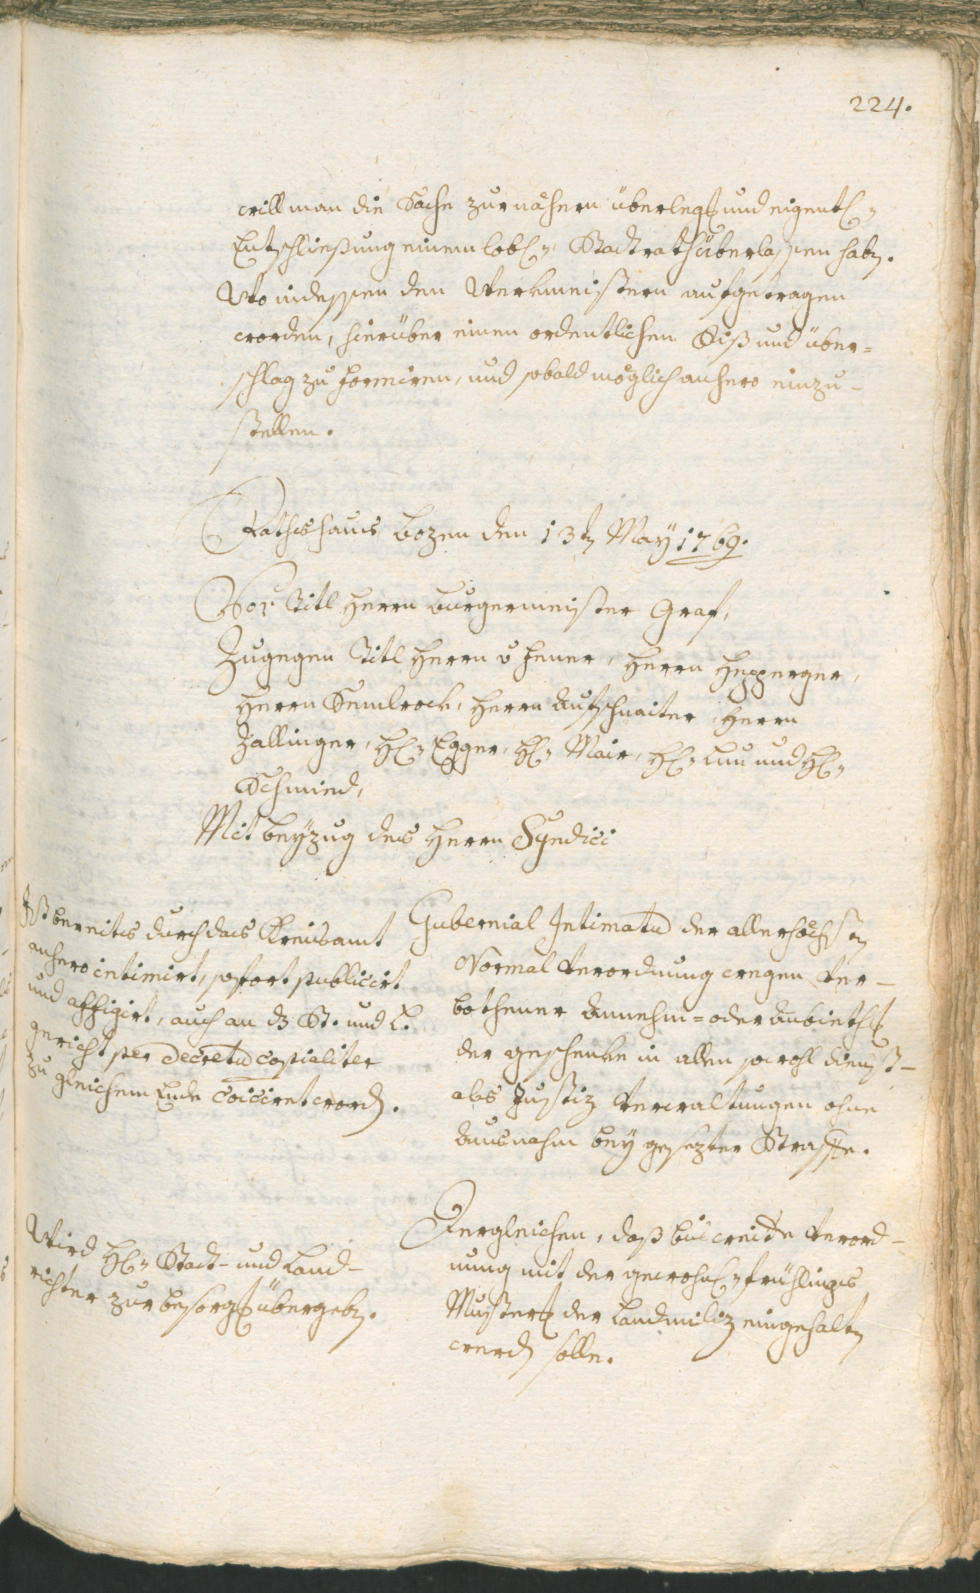 224.
will man die Sache zur nähern überlegg und eigentl:
Entschließung einem lobl: Stadtrath überlassen habn.
Wo indessen den Werkmeistern aufgetragen
worden, hierüber einen ordentlichen Riß und über=
schlag zu formiren, und sobald möglich anhero einzu-
stellen.
Rathshaus Bozen den 13tn May 1769.
Vor Titl Herrn Burgermeister Graf,
Zugegen Titl Herrn v Hener, Herrn Hepperger,
Herrn Semlrock, Herrn Aufschnaiter, Herrn
Zallinger, H: Egger, H: Mair, H: und H:
Schmied,
Mit beyzug des Herrn Syndici
Ist bereits durch das Kreisamt
anhero intimirt, sofort publicirt
und affigirt, auch an dz St. und L.
gericht per Decretu copialiter
zu gleichem Ende coicirt word.
Gubernial Intimatu der allerhöchstn
Normal Verordnung wegen ver-
bothener Annehm= oder Anbiethg
der geschenke in allen sowohl dienst-
als Justiz Verwaltungen ohne
Ausnahm bey gesezter Straffe.
Wird H: Stadt- und Land-
richter zur besorgg übergebn.
Dergleichen, daß bis weitere Verord-
nung mit der gewohnl: frühlings
Musterg der Landmiliz eingehaltn
werdn solle.